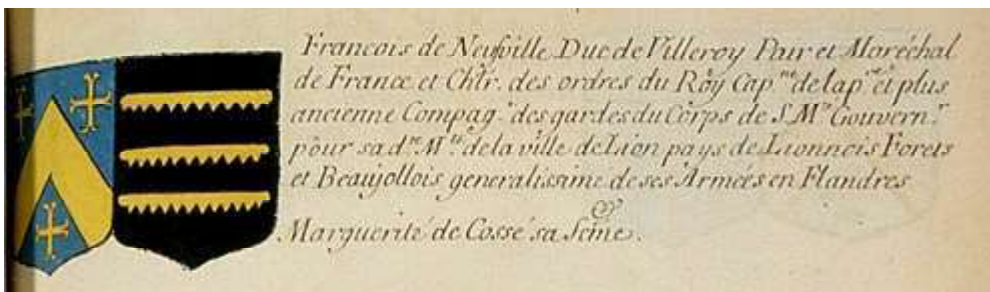 Francois de Neufville Duc de Villeroy Pair et Maréchal
de France et Chlr. des ordres du Roy Cap.ne de la p.re et plus
ancienne Compag.e des gardes du Corps de S. M.te Gouvern.r
pour sa d.te M.te de la ville de Lion pays de Lionnois Forets
et Beaujollois generalissime de ses Armées en Flandres
&
Marguerite de Cossé sa fême.